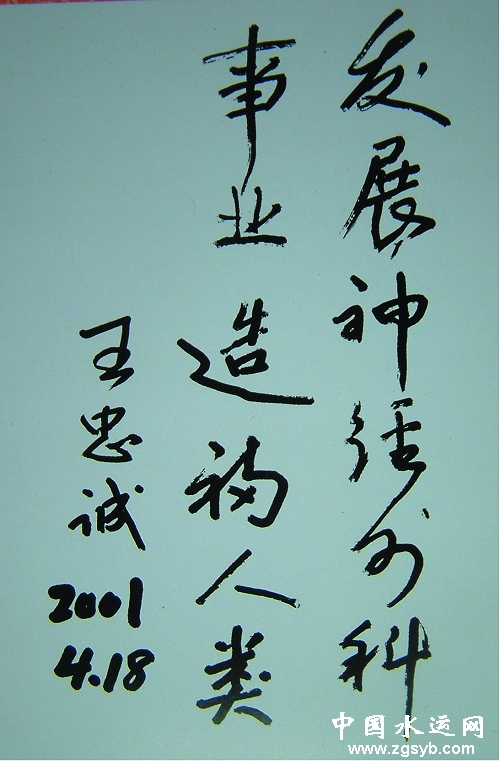 发展神经外科
事业 造福人类
王忠诚
2001
4.18
中国水运网
www.zgsyb.com